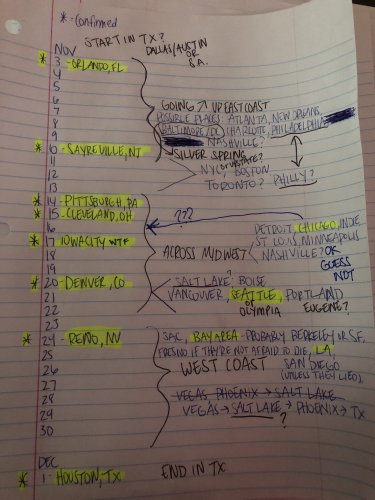 * - Confirmed
START IN TX?
DALLAS/AUSTIN
OR
S.A.
NOV
* 3 - ORLANDO, FL
4
5
6
GOING ↗ UP EAST COAST
7
POSSIBLE PLACES: ATLANTA, NEW ORLEANS,
8
BALTIMORE/DC, CHARLOTTE, PHILADELPHIA
9
NASHVILLE?
* 10 - SAYREVILLE, NJ
SILVER SPRING
11
NYC OR UPSTATE?, BOSTON
12
TORONTO? PHILLY?
13
* 14 - PITTSBURGH, PA
* 15 - CLEVELAND, OH
???
16
DETROIT, CHICAGO, INDIE
* 17 IOWA CITY WTF
ST. LOUIS, MINNEAPOLIS
18
ACROSS MIDWEST
NASHVILLE? OK
19
GUESS
NOT
* 20 - DENVER, CO
SALT LAKE? BOISE
21
VANCOUVER, SEATTLE, PORTLAND
OR
22
OLYMPIA
EUGENE?
23
* 24 - RENO, NV
SAC, BAY AREA - PROBABLY BERKELEY OR SF,
25
FRESNO IF THEY'RE NOT AFRAID TO DIE, LA,
26
WEST COAST
SAN DIEGO
27
(UNLESS THEY LIED).
28
VEGAS, PHOENIX → SALT LAKE
29
VEGAS → SALT LAKE → PHOENIX → TX
30
?
DEC
* 1 - HOUSTON, TX
END IN TX